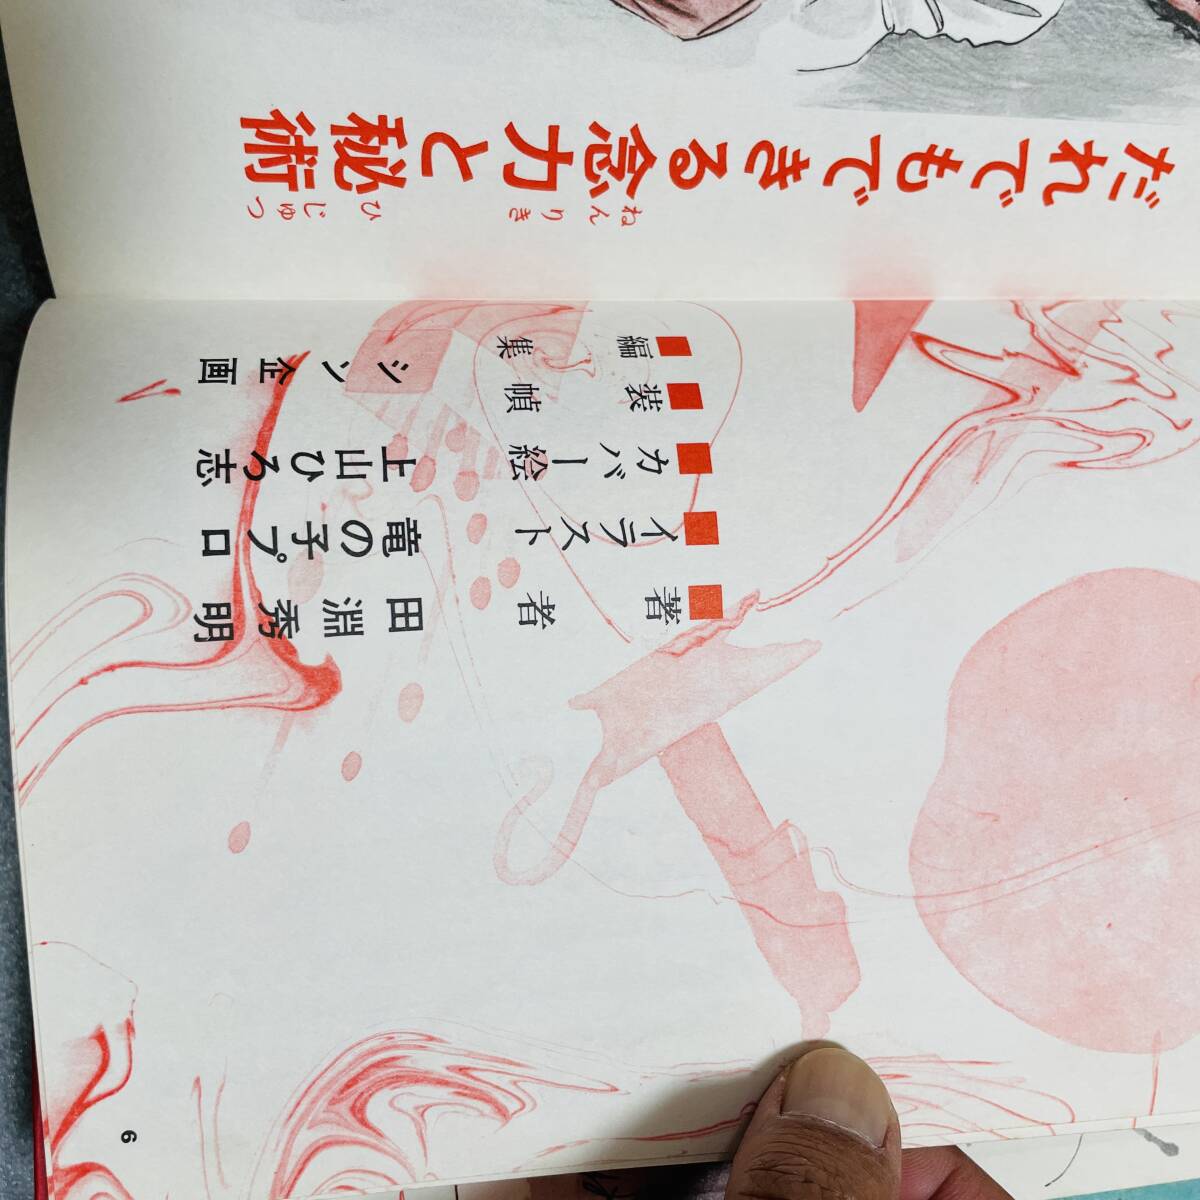 だれでもできる念力と秘術
ねんりき ひじゅつ
著者 田淵秀明
イラスト 竜の子プロ
カバー絵 上山ひろ志
装幀
編集 シン企画
6